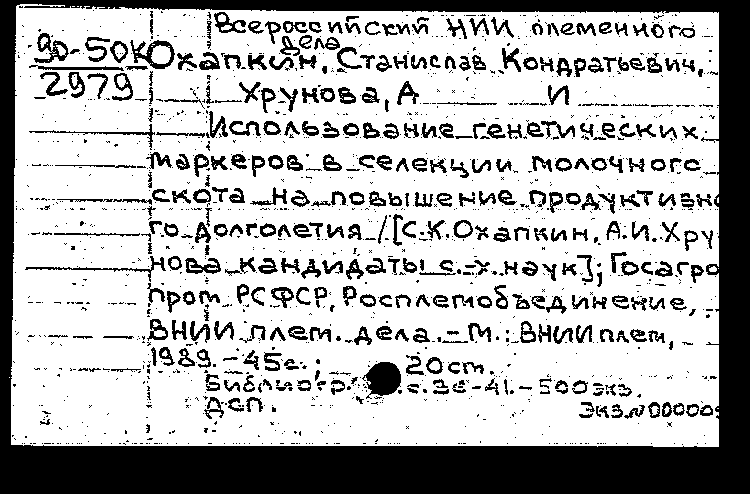 Всероссийский НИИ племенного
дела
90-50К Охапкин, Станислав Кондратьевич,
2979
Хрунова, А И
Использование генетических
маркеров в селекции молочного
скота на повышение продуктивно
го долголетия / [С.К.Охапкин, А.И.Хру
нова кандидаты с.-х. наук]; Госагро
пром РСФСР, Росплемобъединение,
ВНИИ плем. дела. - М.: ВНИИплем,
1989. - 45с.; 20см.
Библиогр. с. 36-41. - 500экз.
ДСП. Экз.N00000